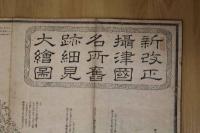 新改正
攝津國
名所舊
跡細見
大繪圖